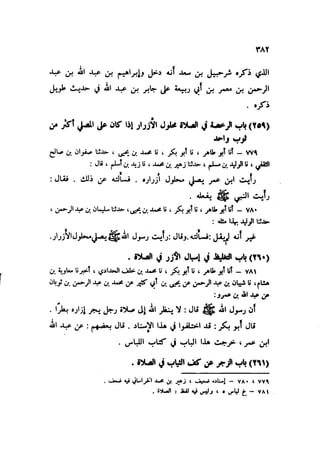 ٣٨٢
الذي ذكره شرحبيل بن سعد أنه دخل وإبراهيم بن عبد الله بن عبد
الرحمن بن معمر بن أبي ربيعة على جابر بن عبد الله في حديث طويل
ذكره .
(٢٥٩) باب الرخصة في الصلاة محلول الأزرار إذا كان على المصلي أكثر من
ثوب واحد
٧٧٩ – أنا أبو طاهر ، نا أبو بكر ، نا محمد بن يحيى ، حدثنا صفوان بن صالح
الثقفي ، حدثنا الوليد بن مسلم ، حدثنا زهير بن محمد ، نا زيد بن أسلم ، قال :
رأيت ابن عمر يصلي محلول أزراره . فسألته عن ذلك . فقال :
رأيت النبي ﷺ يفعله .
٧٨٠ – أنا أبو طاهر ، نا أبو بكر ، نا محمد بن يحيى، حدثنا سليمان بن عبد الرحمن ،
حدثنا الوليد بهذا مثله :
غير أنه لم يقل : فسألته. وقال: رأيت رسول الله ﷺ يصلي محلول الأزرار.
(٢٦٠) باب التغليظ في إسبال الأزر في الصلاة .
٧٨١ – أنا أبو طاهر ، نا أبو بكر ، نا محمد بن خلف الحدادي ، أخبرنا معاوية بن
هشام، نا شيبان بن عبد الرحمن عن يحيى بن أبي كثير عن محمد بن عبد الرحمن بن ثوبان
عن عبد الله بن عمرو:
أن رسول الله ﷺ قال : لا ينظر الله إلى صلاة رجل يجر إزاره بطراً .
قال أبو بكر : قد اختلفوا في هذا الإسناد . قال بعضهم : عن عبد الله
ابن عمر ، خرجت هذا الباب في كتاب اللباس .
(٢٦١) باب الزجر عن كف الثياب في الصلاة .
٧٧٩ – إسناده ضعيف ، زهير بن محمد الخراساني فيه ضعف .
٧٨١ – خ لباس ٥ ، وليس فيه لفظ : الصلاة .